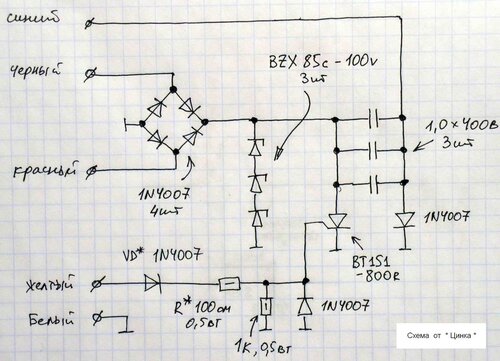 синий
черный
BZX 85c - 100v
3шт
1,0 x 400в
3шт
красный
1N4007
4шт
1N4007
VD* 1N4007
BT151
-800R
желтый
R* 100ом
0,5вт
1N4007
Белый
1к, 0,5вт
Схема от " Цинка "